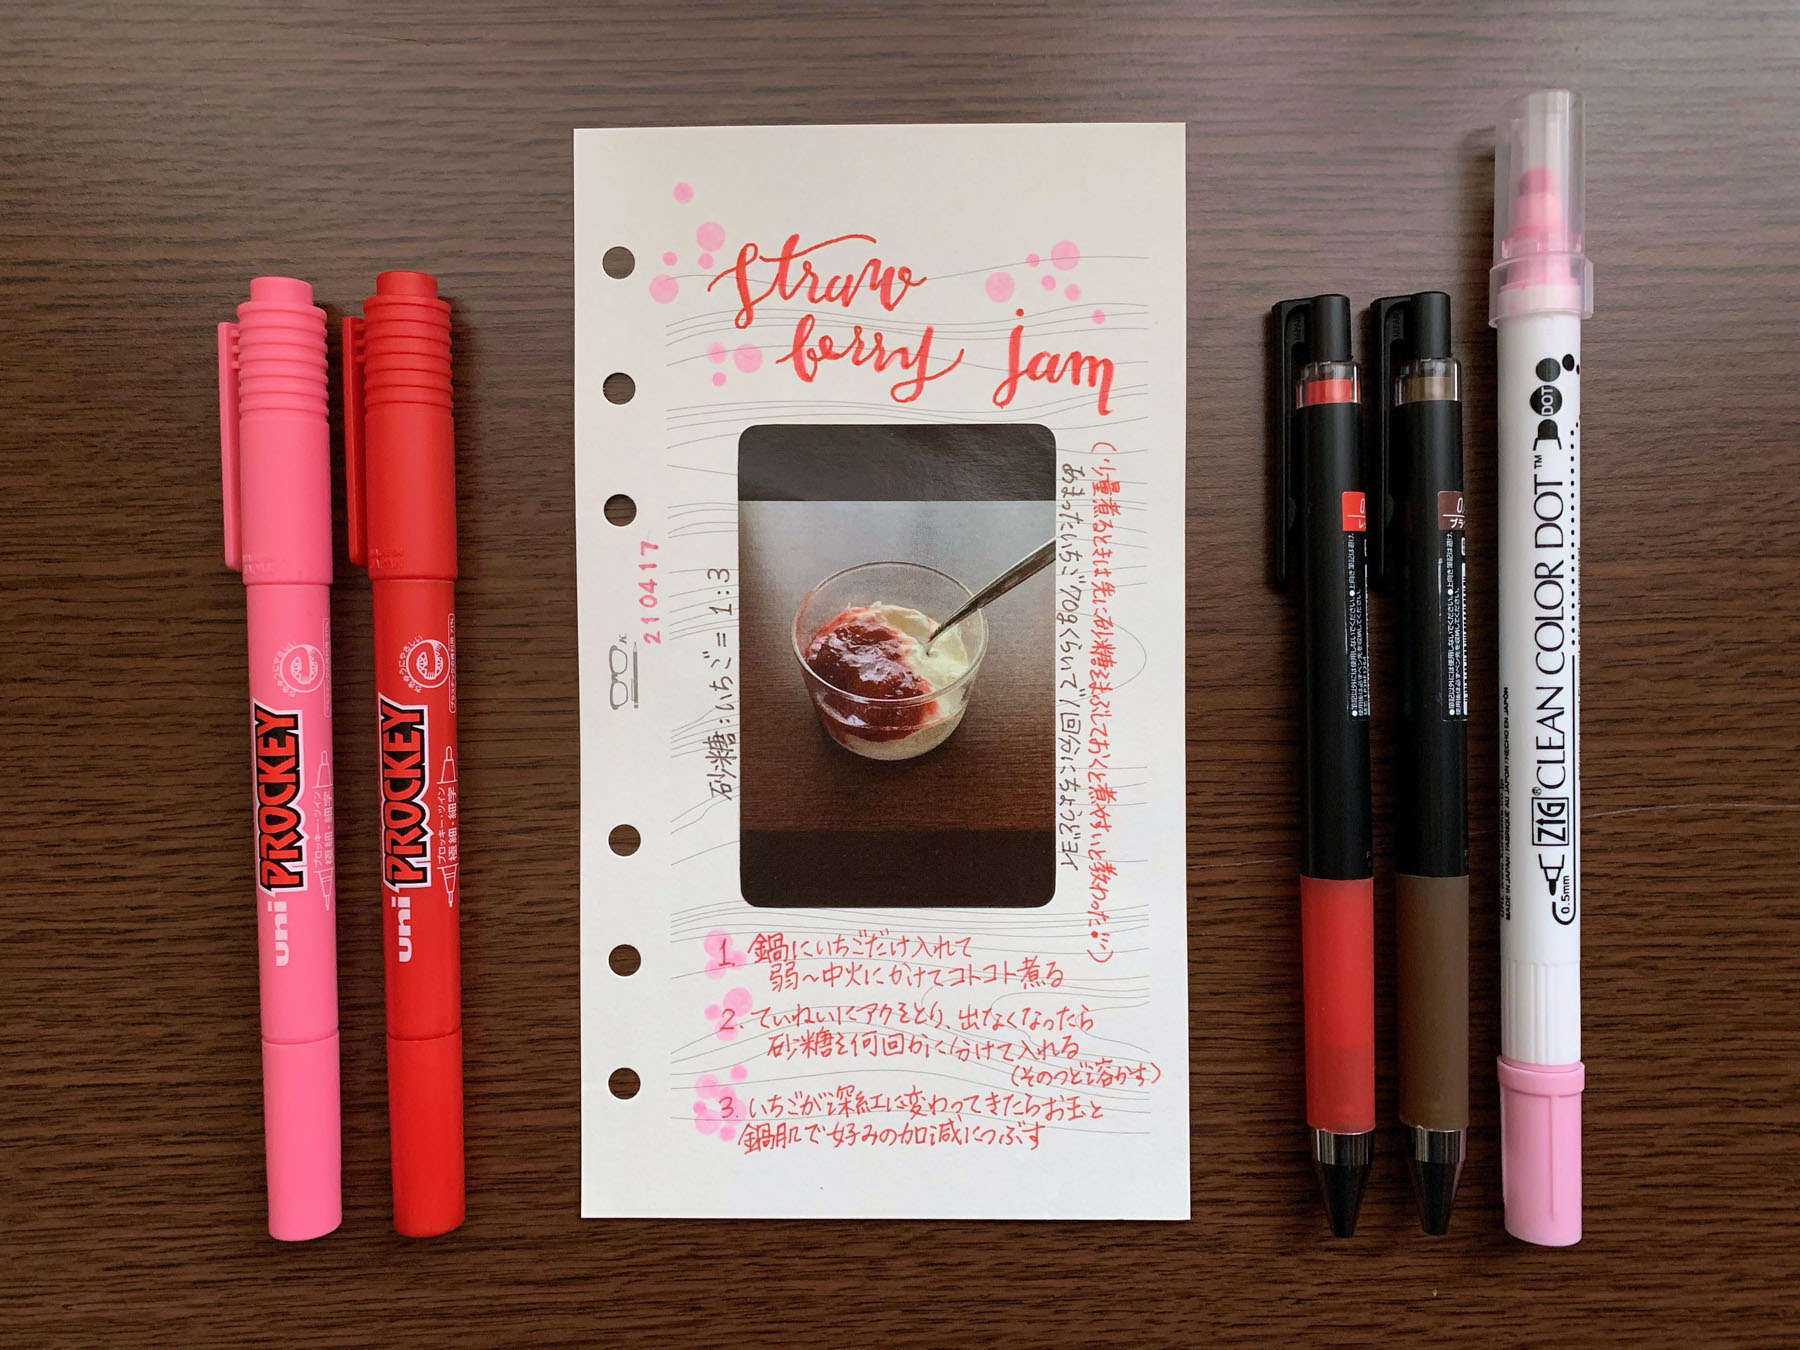 straw
berry jam
210417
K.
砂糖:いちご = 1:3
(少量煮るときは先にお砂糖をまぶしておくと煮やすいと教わった!)
あまったいちご70gくらいで1回分にちょうどヨイ
1. 鍋にいちごだけ入れて
弱〜中火にかけてコトコト煮る
2. ていねいにアクをとり、出なくなったら
砂糖を何回かに分けて入れる
(そのつど溶かす)
3. いちごが深紅に変わってきたらお玉と
鍋肌で好みの加減につぶす
uni PROCKEY
プロッキー・ツイン
極細・細字
uni PROCKEY
プロッキー・ツイン
極細・細字
ZIG® CLEAN COLOR DOT™
DOT
0.5mm
MADE IN JAPAN/FABRIQUÉ AU JAPON/HECHO EN JAPÓN